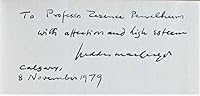 To Professor Terence Penelhum
with affection and high esteem
Calgary,
8 November 1979